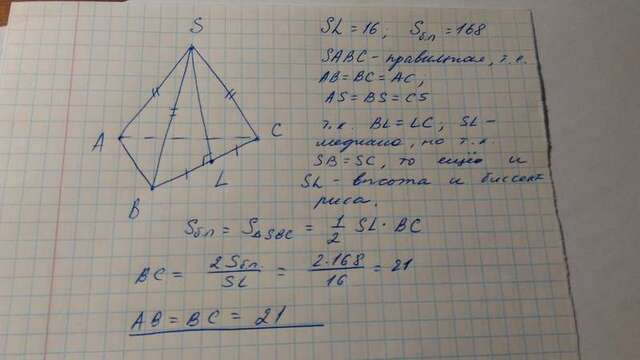 S
A
C
B
L
SL = 16; Sбп = 168
SABC - правильная, т.к.
AB = BC = AC,
AS = BS = CS
т.к. BL = LC; SL -
медиана, но т.к.
SB = SC, то ещё и
SL - высота и биссект
риса.
Sбп = S△SBC = 1/2 SL · BC
BC = 2Sбп/SL = 2·168/16 = 21
AB = BC = 21